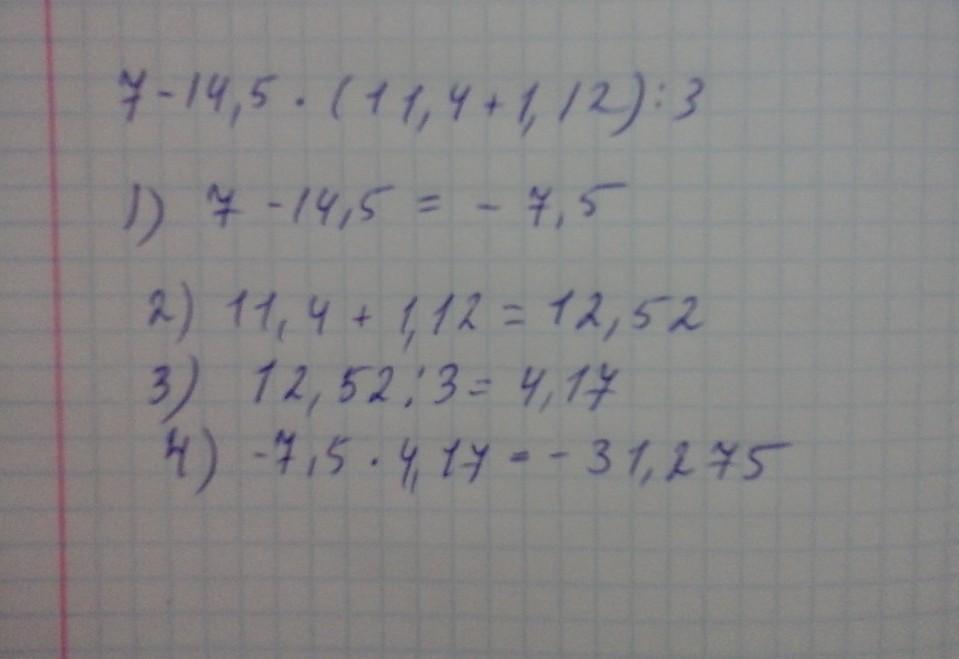 7-14,5 · (11,4+1,12):3
1) 7-14,5 = -7,5
2) 11,4 + 1,12 = 12,52
3) 12,52:3 = 4,17
4) -7,5 · 4,17 = -31,275